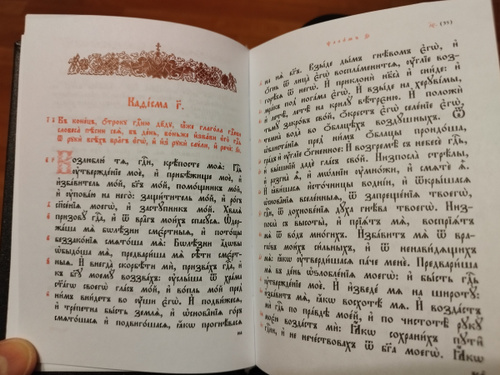 Каѳі́сма г҃.
Въ коне́цъ, о҆́трокꙋ гдⷭ҇ню дв҃дꙋ, ꙗ҆̀же глаго́ла гдⷭ҇еви
словеса̀ пѣ́сни сеѧ̀, въ де́нь, во́ньже и҆зба́ви є҆го̀ гдⷭ҇ь
ѿ рꙋкѝ всѣ́хъ вра̑гъ є҆гѡ̀, и҆ и҆з̾ рꙋкѝ саꙋ́ли, и҆ речѐ:
Возлюблю́ тѧ, гдⷭ҇и, крѣ́посте моѧ̀: гдⷭ҇ь
ᲂу҆твержде́нїе моѐ, и҆ прибѣ́жище моѐ, и҆
и҆зба́витель мо́й, бг҃ъ мо́й, помо́щникъ мо́й,
и҆ ᲂу҆пова́ю на него̀: защи́титель мо́й, и҆ ро́гъ
спⷭ҇нїѧ моегѡ̀, и҆ застꙋ́пникъ мо́й. Хвалѧ̀
призовꙋ̀ гдⷭ҇а, и҆ ѿ вра̑гъ мои́хъ спасꙋ́сѧ. Ѡ҆дер-
жа́ша мѧ̀ бѡлѣ́зни смє́ртныѧ, и҆ пото́цы
беззако́нїѧ смѧто́ша мѧ̀: Бѡлѣ́зни а҆́дѡвы
ѡ҆быдо́ша мѧ̀, предвари́ша мѧ̀ сѣ̑ти смє́рт-
ныѧ. И҆ внегда̀ скорбѣ́ти мѝ, призва́хъ гдⷭ҇а, и҆
къ бг҃ꙋ моемꙋ̀ воззва́хъ: ᲂу҆слы́ша ѿ хра́ма
ст҃а́гѡ своегѡ̀ гла́съ мо́й, и҆ во́пль мо́й пред̾
ни́мъ вни́детъ во ᲂу҆́шы є҆гѡ̀. И҆ подви́жесѧ,
и҆ тре́петна бы́сть землѧ̀, и҆ ѡ҆снова̑нїѧ го́ръ
смѧто́шасѧ, и҆ подвиго́шасѧ, ꙗ҆́кѡ прогнѣ́васѧ
на нѧ̀ бг҃ъ. Взы́де ды́мъ гнѣ́вомъ є҆гѡ̀, и҆
ѻ҆́гнь ѿ лица̀ є҆гѡ̀ воспла́менитсѧ, ᲂу҆́глїе воз-
горѣ́сѧ ѿ негѡ̀. И҆ приклонѝ нб҃са̀ и҆ сни́де: и҆
мра́къ под̾ нога́ма є҆гѡ̀. И҆ взы́де на херꙋві́мы,
и҆ летѣ̀, летѣ̀ на крилꙋ̀ вѣ́тренню. И҆ положѝ
тмꙋ̀ закро́въ сво́й, ѡ҆́крестъ є҆гѡ̀ селе́нїе є҆гѡ̀:
темна̀ вода̀ во ѡ҆́блацѣхъ воздꙋ́шныхъ. Ѿ
ѡ҆блиста́нїѧ пред̾ ни́мъ ѡ҆́блацы проидо́ша,
гра́дъ и҆ ᲂу҆́глїе ѻ҆́гненное: И҆ возгремѣ̀ съ небесѐ гдⷭ҇ь,
и҆ вы́шнїй дадѐ гла́съ сво́й. Низпосла̀ стрѣ́лы,
и҆ разгна̀ ѧ҆̀: и҆ мѡ́лнїи ᲂу҆мно́жи, и҆ смѧтѐ ѧ҆̀. И҆
ꙗ҆ви́шасѧ и҆сто́чницы водні́и, и҆ ѿкры́шасѧ
ѡ҆снова̑нїѧ вселе́нныѧ, ѿ запреще́нїѧ твоегѡ̀,
гдⷭ҇и, ѿ дохнове́нїѧ дꙋ́ха гнѣ́ва твоегѡ̀. Низ-
посла̀ съ высоты̀, и҆ прїѧ́тъ мѧ̀, воспрїѧ́тъ
мѧ̀ ѿ во́дъ мно́гихъ. И҆зба́витъ мѧ̀ ѿ вра-
гѡ́въ мои́хъ си́льныхъ, и҆ ѿ ненави́дѧщихъ
мѧ̀: ꙗ҆́кѡ ᲂу҆тверди́шасѧ па́че менє̀. Предвари́ша
мѧ̀ въ де́нь ѡ҆ѕлобле́нїѧ моегѡ̀: и҆ бы́сть гдⷭ҇ь
ᲂу҆твержде́нїе моѐ. И҆ и҆зведе́ мѧ на широтꙋ̀:
и҆зба́витъ мѧ̀, ꙗ҆́кѡ восхотѣ́ мѧ. И҆ возда́стъ
мѝ гдⷭ҇ь по пра́вдѣ мое́й, и҆ по чистотѣ̀ рꙋкꙋ̀
моє́ю возда́стъ мѝ: Ꙗ҆́кѡ сохрани́хъ пꙋти̑
гдⷭ҇ни, и҆ не нече́ствовахъ ѿ бг҃а моегѡ̀. И҆